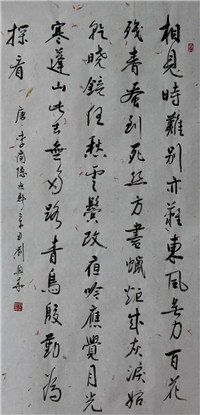 相見時難別亦難東風無力百花
殘春蚕到死絲方盡蠟炬成灰淚始
乾曉鏡但愁雲鬢改夜吟應覺月光
寒蓬山此去無多路青鳥殷勤為
探看 唐李商隱